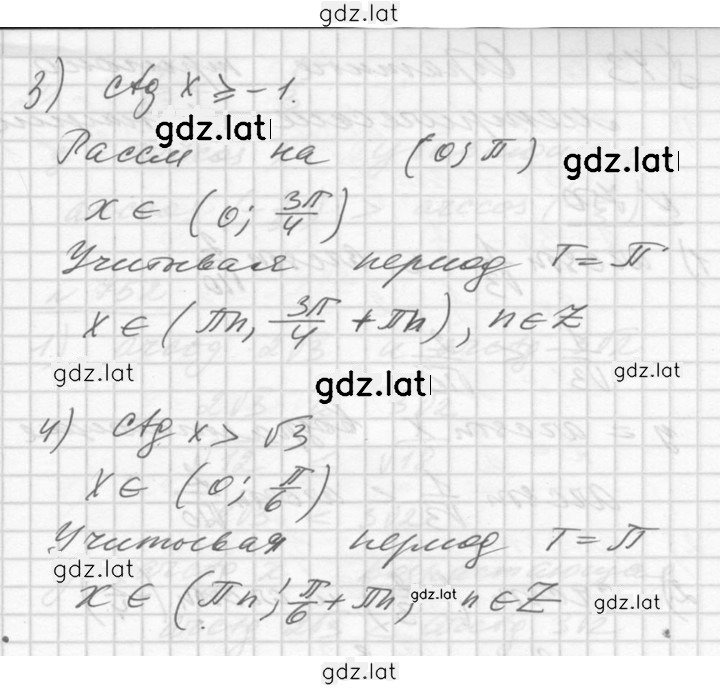 gdz.lat
3) ctg x ⩾ -1.
gdz.lat
Рассм на (0; π)
gdz.lat
x ∈ (0; 3π/4)
Учитывая период T = π
x ∈ (πn, 3π/4 + πn), n ∈ Z
gdz.lat
gdz.lat
gdz.lat
4) ctg x > √3
x ∈ (0; π/6)
Учитывая период T = π
gdz.lat
x ∈ (πn; π/6 + πn; n ∈ Z
gdz.lat
gdz.lat
gdz.lat